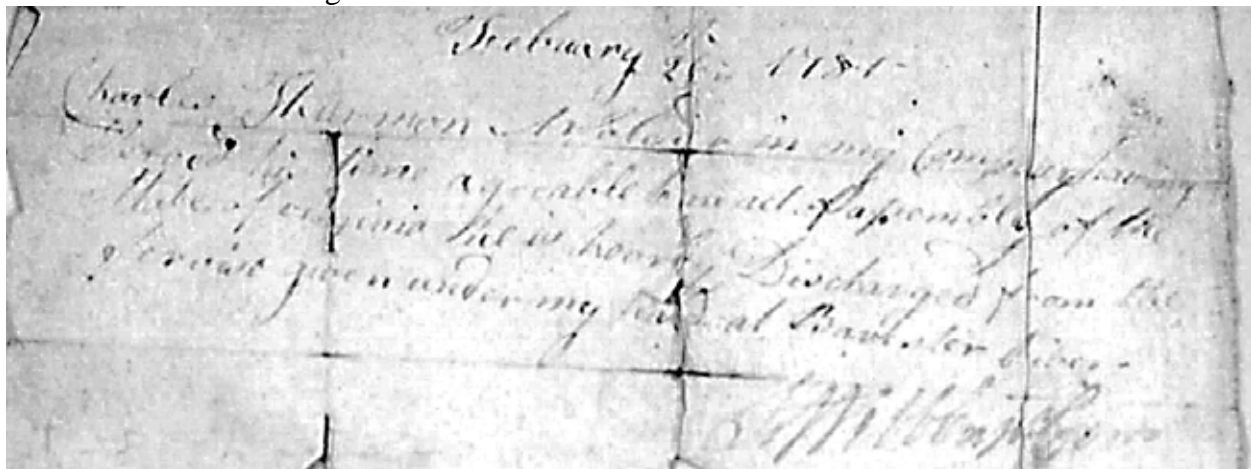 Febuary 26th 1781
Charles Sharmon A Soldier in my Company having
Served his time agreable to an act of assembly of the
State of virginia he is hearby Discharged from the
Servise given under my hand at Banester River